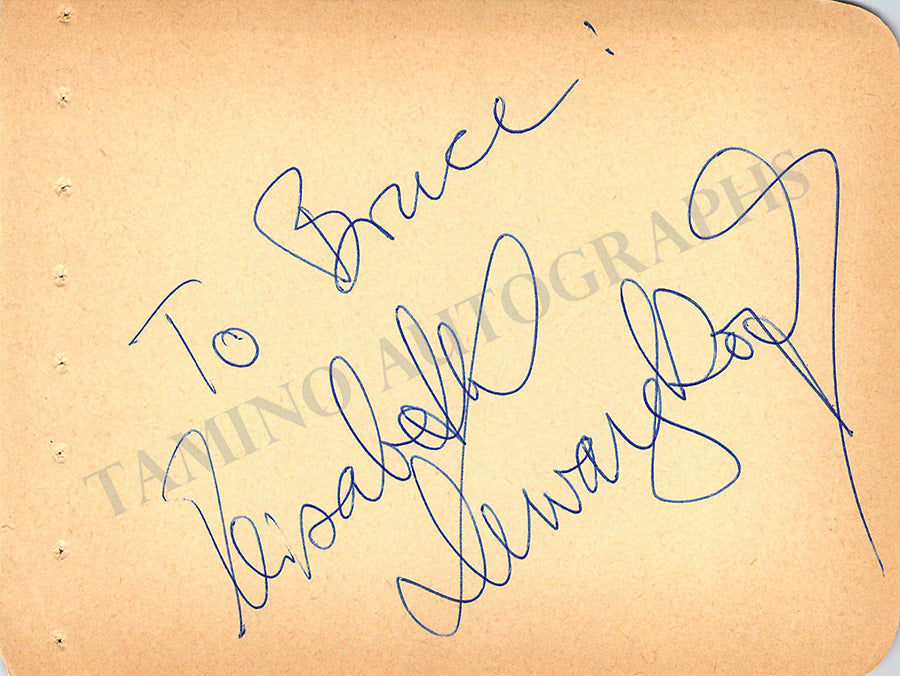 To Bruce!
Elisabeth
Schwarzkopf
TAMINO AUTOGRAPHS